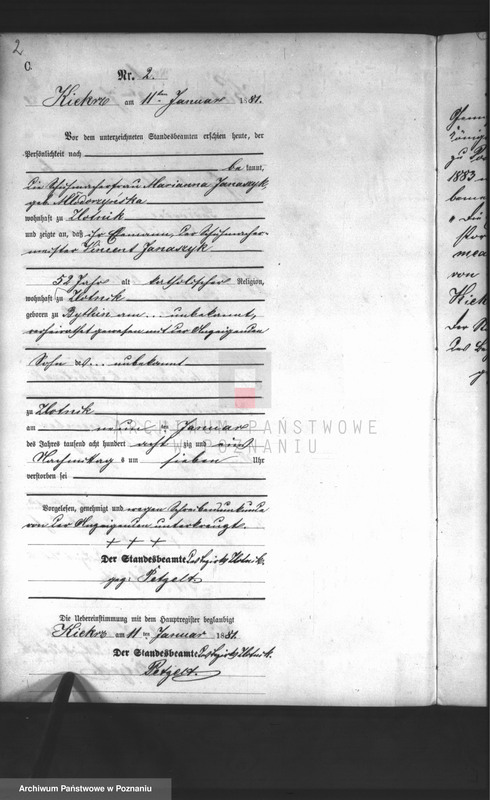 2
C.
Nr. 2.
Kiekrz am 11ten Januar 1881.
Vor dem unterzeichneten Standesbeamten erschien heute, der
Persönlichkeit nach
be kannt,
die Schuhmacherfrau Marianna Janaszyk,
geb.
wohnhaft zu Zlotnik
und zeigte an, daß ihr Ehemann, der Schuhmacher-
meister Vincent Janaszyk
52 Jahr alt katholischer Religion,
wohnhaft zu Zlotnik
geboren zu Bythin am ... unbekannt,
verheirathet gewesen mit der Anzeigenden
Sohn des ... unbekannt
zu Zlotnik
am neunten Januar
des Jahres tausend acht hundert acht zig und eins
Nachmittags um sieben Uhr
verstorben sei
Vorgelesen, genehmigt und wegen Schreibensunkunde
von der Anzeigenden unterkreuzt.
+ + +
Der Standesbeamte des Bezirks Zlotnik.
gez: Petzelt
Die Uebereinstimmung mit dem Hauptregister beglaubigt
Kiekrz am 11 ten Januar 1881.
Der Standesbeamte des Bezirks Zlotnik.
Petzelt.
ARCHIWUM PAŃSTWOWE
W POZNANIU
zu
1883
von
Kiek
Archiwum Państwowe w Poznaniu